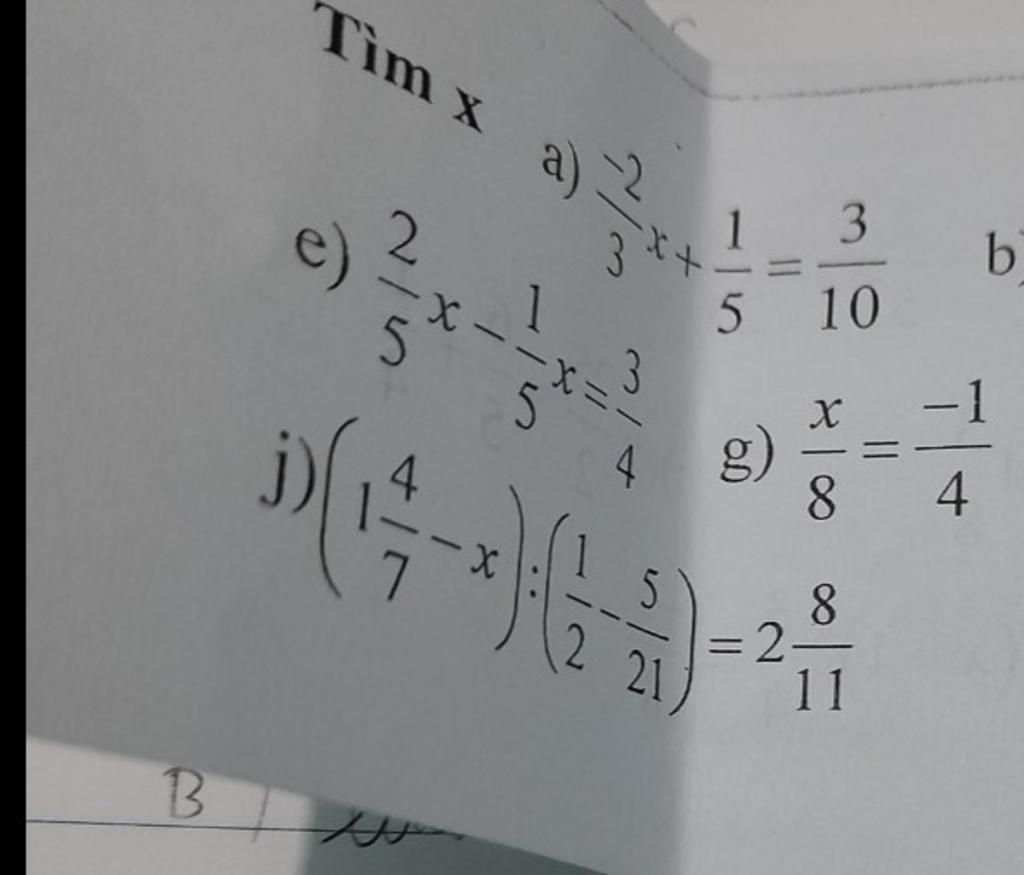 Tìm x
a) \frac{-2}{3}x + \frac{1}{5} = \frac{3}{10} b)
e) \frac{2}{5}x - \frac{1}{5}x = \frac{3}{4} g) \frac{x}{8} = \frac{-1}{4}
j) \left(1\frac{4}{7} - x\right) : \left(\frac{1}{2} - \frac{5}{21}\right) = 2\frac{8}{11}
B